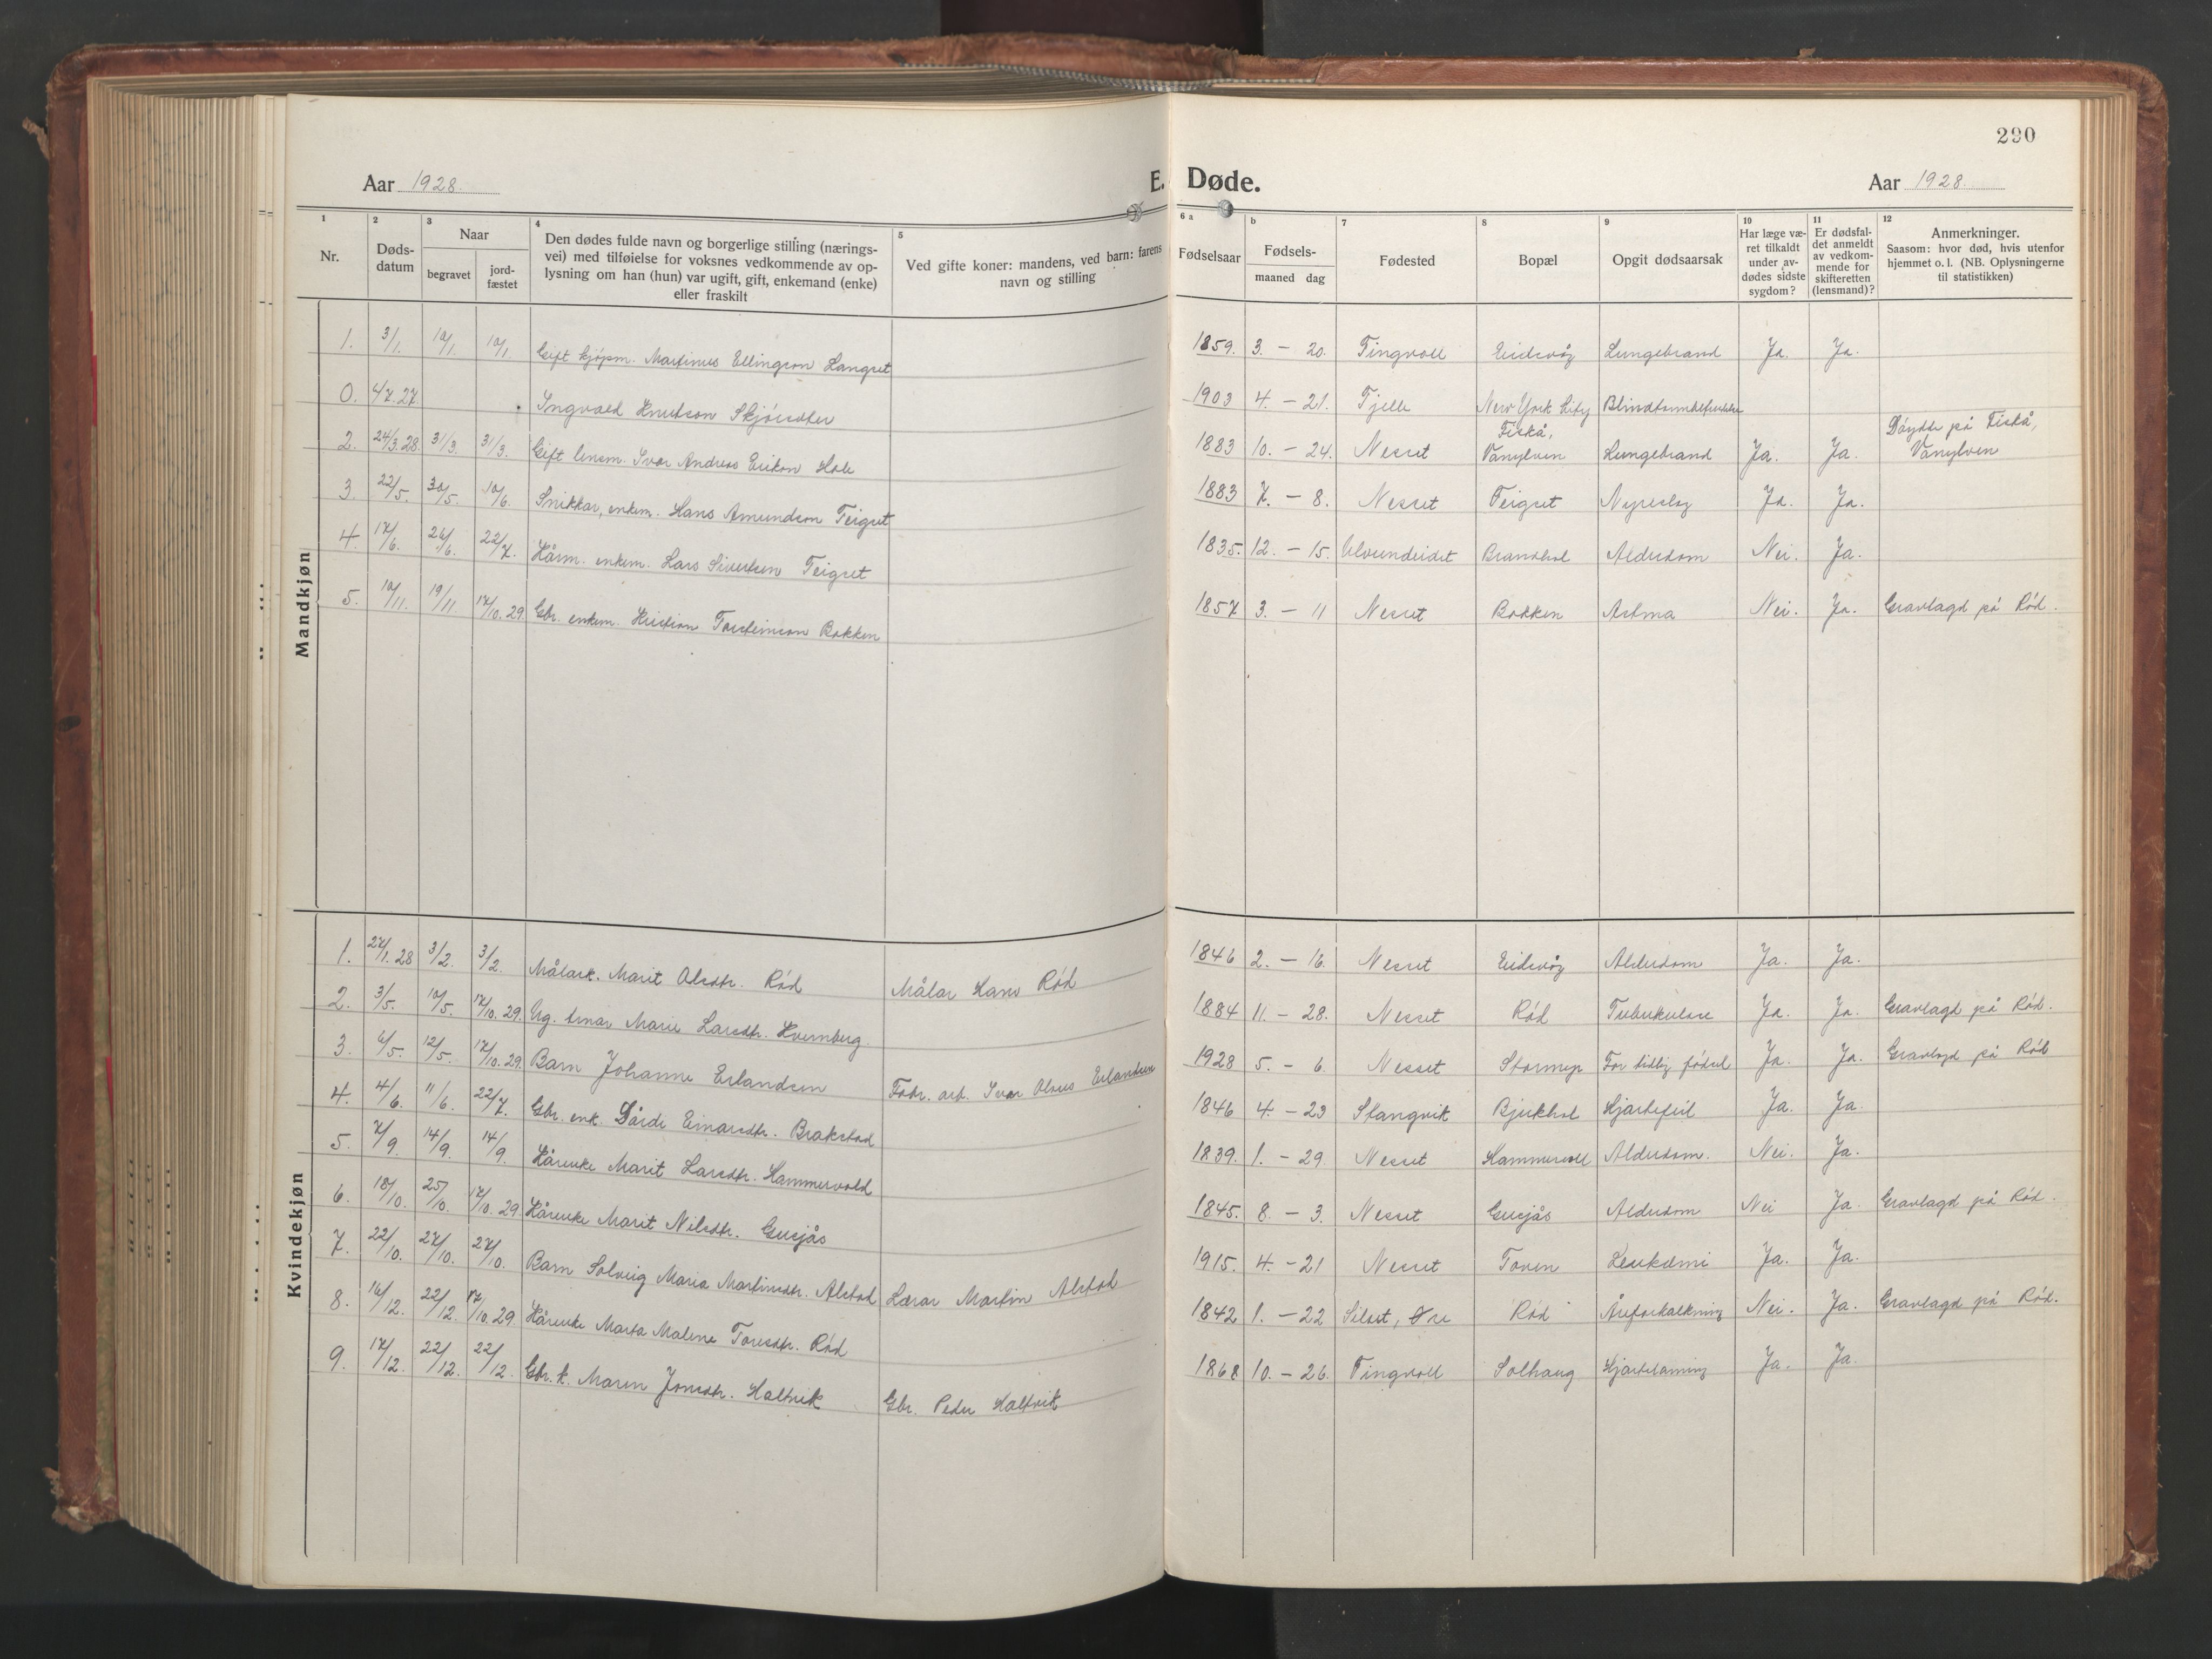 290
Aar 1928.
E. Døde.
Aar 1928.
1 2 3 4 5 6 a b 7 8 9 10 11 12
Nr.
Døds-
datum
Naar
begravet
jord-
fæstet
Den dødes fulde navn og borgerlige stilling (nærings-
vei) med tilføielse for voksnes vedkommende av op-
lysning om han (hun) var ugift, gift, enkemand (enke)
eller fraskilt
Ved gifte koner: mandens, ved barn: farens
navn og stilling
Fødselsaar
Fødsels-
maaned dag
Fødested
Bopæl
Opgit dødsaarsak
Har læge væ-
ret tilkaldt
under av-
dødes sidste
sygdom?
Er dødsfal-
det anmeldt
av vedkom-
mende for
skifteretten
(lensmand)?
Anmerkninger.
Saasom: hvor død, hvis utenfor
hjemmet o. l. (NB. Oplysningerne
til statistikken)
Mandkjøn
1. 3/1. 10/1. 10/1. Gift kjøpm. Martinus Ellingson Langset 1859. 3. - 20. Tingvoll Eidsvåg Lungebrand Ja. Ja.
0. 4/7.27 Ingvald Knutson Skjórseter 1903 4. - 21. Fjelle New York City
2. 24/3.28 31/3. 31/3. Gift lensm. Ivar Andreas Erikson Hole 1883 10. - 24. Nesset Fiskå, Vanylven Lungebrand Ja. Ja. Döydde på Fiskå, Vanylven
3. 22/5. 30/5. 10/6. Snikkar, enkem. Hans Amundson Teigset 1883 7. - 8. Nesset Teigset Ja. Ja.
4. 17/6. 26/6. 22/7. Kårm. enkem. Lars Sivertsen Teigset 1835. 12. - 15. Ulvundeidet Brandhol Alderdom Nei. Ja.
5. 10/11. 19/11 17/10.29 Gbr. enkem. Kristian Torsteinson Bakken 1857 3. - 11 Nesset Bakken Astma Nei. Ja. Gravlagd på Röd.
Kvindekjøn
1. 27/1.28 3/2. 3/2. Målark. Marit Olsdtr. Röd Målar Hans Röd 1846 2. - 16. Nesset Eidsvåg Alderdom Ja. Ja.
2. 3/5. 10/5. 17/10.29. Ug. tenar Marie Larsdtr. Kvernberg 1884 11. - 28. Nesset Röd Tuberkulose Ja. Ja. Gravlagd på Röd.
3. 6/5. 12/5. 17/10.29. Barn Johanne Erlandsen Fabr. arb. Ivar Olaus Erlandsen 1928 5. - 6. Nesset Stormyr For tidlig födsel Ja. Ja. Gravlagd på Röd
4. 4/6. 11/6. 22/7. Gbr. enk. Dårdi Einarsdtr. Brakstad 1846 4. - 23 Stangvik Bjerkhol Hjartefeil Ja. Ja.
5. 7/9. 14/9. 14/9. Kårenke Marit Larsdtr. Hammervold 1839. 1. - 29. Nesset Hammervoll Alderdom. Nei. Ja.
6. 18/10. 25/10. 17/10.29 Kårenke Marit Nilsdtr. Gusjås 1845. 8. - 3. Nesset Gusjås Alderdom Nei Ja. Gravlagd på Röd.
7. 22/10. 27/10. 27/10. Barn Solveig Maria Martinsdtr. Alstad Lærar Martin Alstad 1915. 4. - 21 Nesset Toven Leukæmi Ja. Ja.
8. 16/12. 22/12. 17/10.29 Kårenke Marta Maline Toresdtr. Röd 1842 1. - 22 Silset, Øre Röd Åreforkalkning Nei. Ja. Gravlagd på Röd.
9. 17/12. 22/12. 22/12. Gbr. k. Maren Jonsdtr. Haltvik Gbr. Peder Haltvik 1868 10. - 26. Tingvoll Solhaug Hjartelaming Ja. Ja.